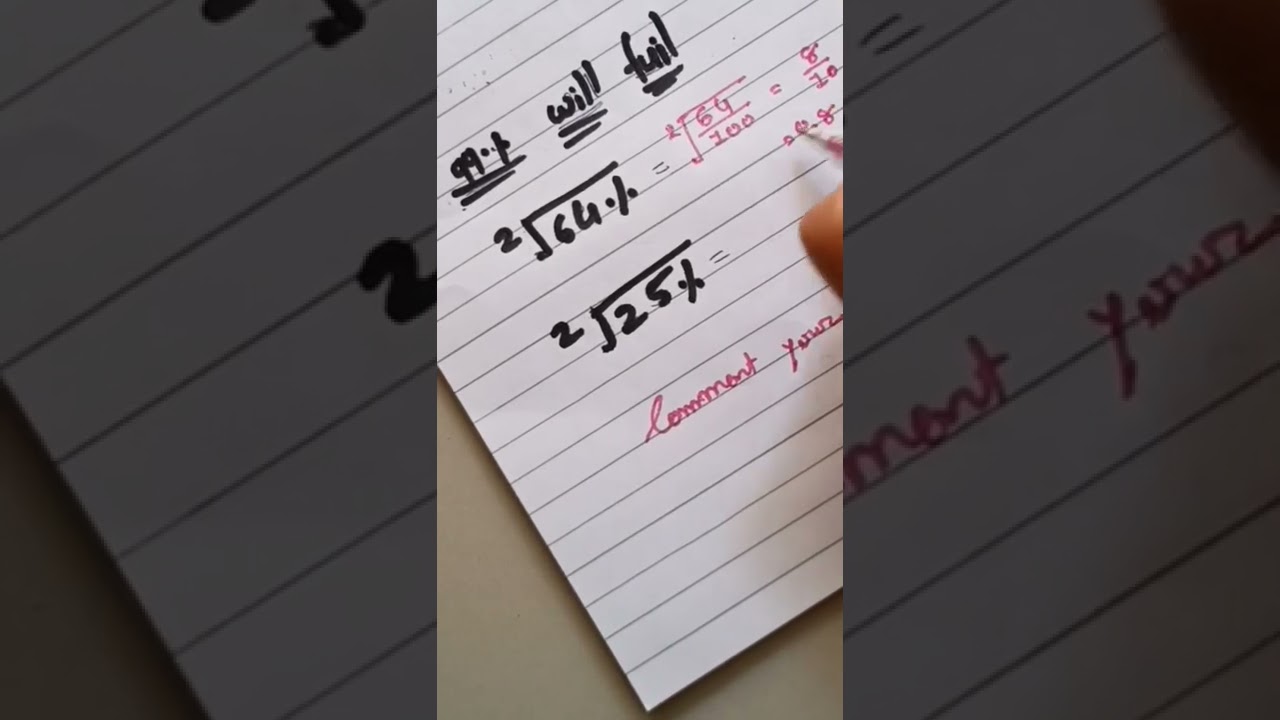 99% will fail
²√64% = ²√64/100 = 8/10
= 0.8
²√25% =
Comment your